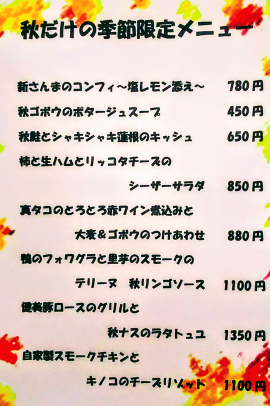 秋だけの季節限定メニュー
新さんまのコンフィ～塩レモン添え～ 780円
秋ゴボウのポタージュスープ 450円
秋鮭とシャキシャキ蓮根のキッシュ 650円
柿と生ハムとリッコタチーズの
シーザーサラダ 850円
真タコのとろとろ赤ワイン煮込みと
大麦＆ゴボウのつけあわせ 880円
鴨のフォワグラと里芋のスモークの
テリーヌ 秋リンゴソース 1100円
健美豚ロースのグリルと
秋ナスのラタトュユ 1350円
自家製スモークチキンと
キノコのチーズリゾット 1100円